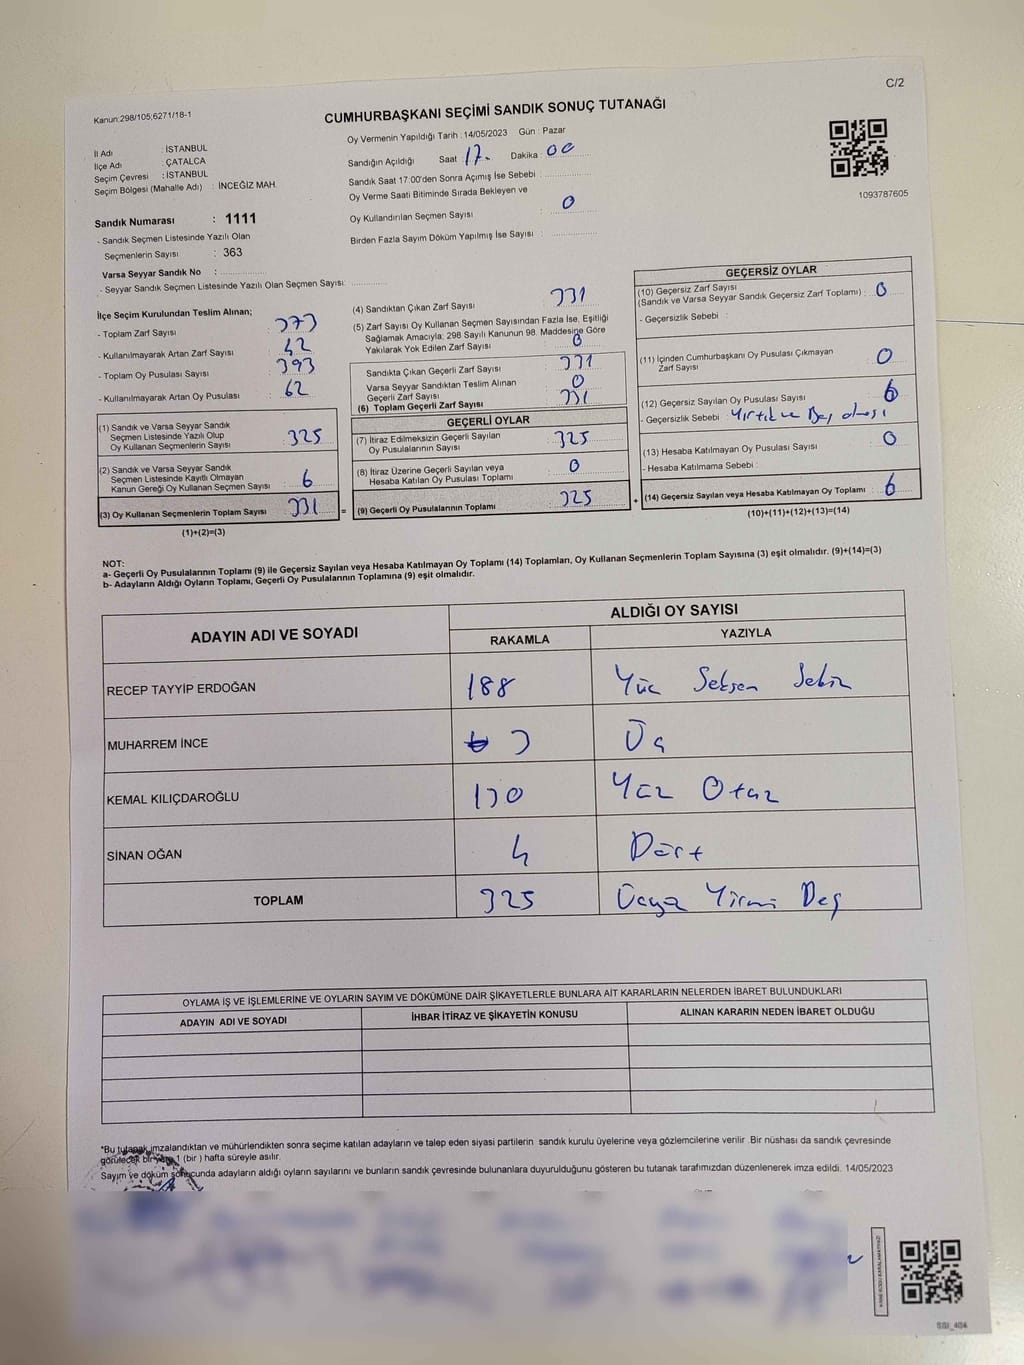 C/2
Kanun:298/105;6271/18-1
CUMHURBAŞKANI SEÇİMİ SANDIK SONUÇ TUTANAĞI
İl Adı : İSTANBUL
İlçe Adı : ÇATALCA
Seçim Çevresi : İSTANBUL
Seçim Bölgesi (Mahalle Adı) : İNCEĞİZ MAH.
Sandık Numarası : 1111
- Sandık Seçmen Listesinde Yazılı Olan
Seçmenlerin Sayısı : 363
Varsa Seyyar Sandık No :
- Seyyar Sandık Seçmen Listesinde Yazılı Olan Seçmen Sayısı:
Oy Vermenin Yapıldığı Tarih : 14/05/2023 Gün : Pazar
Sandığın Açıldığı Saat 17. Dakika : 00
Sandık Saat 17:00'den Sonra Açımış İse Sebebi :
Oy Verme Saati Bitiminde Sırada Bekleyen ve
Oy Kullandırılan Seçmen Sayısı : 0
Birden Fazla Sayım Döküm Yapılmış İse Sayısı :
1093787605
İlçe Seçim Kurulundan Teslim Alınan;
- Toplam Zarf Sayısı : 373
- Kullanılmayarak Artan Zarf Sayısı : 42
- Toplam Oy Pusulası Sayısı : 393
- Kullanılmayarak Artan Oy Pusulası : 62
(1) Sandık ve Varsa Seyyar Sandık
Seçmen Listesinde Yazılı Olup
Oy Kullanan Seçmenlerin Sayısı : 325
(2) Sandık ve Varsa Seyyar Sandık
Seçmen Listesinde Kayıtlı Olmayan
Kanun Gereği Oy Kullanan Seçmen Sayısı : 6
(3) Oy Kullanan Seçmenlerin Toplam Sayısı : 331 =
(1)+(2)=(3)
(4) Sandıktan Çıkan Zarf Sayısı : 331
(5) Zarf Sayısı Oy Kullanan Seçmen Sayısından Fazla İse, Eşitliği
Sağlamak Amacıyla; 298 Sayılı Kanunun 98. Maddesine Göre
Yakılarak Yok Edilen Zarf Sayısı : 0
Sandıkta Çıkan Geçerli Zarf Sayısı : 331
Varsa Seyyar Sandıktan Teslim Alınan
Geçerli Zarf Sayısı : 0
(6) Toplam Geçerli Zarf Sayısı : 331
GEÇERLİ OYLAR
(7) İtiraz Edilmeksizin Geçerli Sayılan
Oy Pusulalarının Sayısı : 325
(8) İtiraz Üzerine Geçerli Sayılan veya
Hesaba Katılan Oy Pusulası Toplamı : 0
(9) Geçerli Oy Pusulalarının Toplamı : 325 +
GEÇERSİZ OYLAR
(10) Geçersiz Zarf Sayısı
(Sandık ve Varsa Seyyar Sandık Geçersiz Zarf Toplamı) : 0
- Geçersizlik Sebebi :
(11) İçinden Cumhurbaşkanı Oy Pusulası Çıkmayan
Zarf Sayısı : 0
(12) Geçersiz Sayılan Oy Pusulası Sayısı : 6
- Geçersizlik Sebebi : Yırtık ve Boş olması
(13) Hesaba Katılmayan Oy Pusulası Sayısı : 0
- Hesaba Katılmama Sebebi :
(14) Geçersiz Sayılan veya Hesaba Katılmayan Oy Toplamı : 6
(10)+(11)+(12)+(13)=(14)
NOT:
a- Geçerli Oy Pusulalarının Toplamı (9) ile Geçersiz Sayılan veya Hesaba Katılmayan Oy Toplamı (14) Toplamları, Oy Kullanan Seçmenlerin Toplam Sayısına (3) eşit olmalıdır. (9)+(14)=(3)
b- Adayların Aldığı Oyların Toplamı, Geçerli Oy Pusulalarının Toplamına (9) eşit olmalıdır.
ADAYIN ADI VE SOYADI
ALDIĞI OY SAYISI
RAKAMLA YAZIYLA
RECEP TAYYİP ERDOĞAN 188 Yüz Seksen Sekiz
MUHARREM İNCE 3 Üç
KEMAL KILIÇDAROĞLU 130 Yüz Otuz
SİNAN OĞAN 4 Dört
TOPLAM 325 Üçyüz Yirmi Beş
OYLAMA İŞ VE İŞLEMLERİNE VE OYLARIN SAYIM VE DÖKÜMÜNE DAİR ŞİKAYETLERLE BUNLARA AİT KARARLARIN NELERDEN İBARET BULUNDUKLARI
ADAYIN ADI VE SOYADI İHBAR İTİRAZ VE ŞİKAYETİN KONUSU ALINAN KARARIN NEDEN İBARET OLDUĞU
*Bu tutanak imzalandıktan ve mühürlendikten sonra seçime katılan adayların ve talep eden siyasi partilerin sandık kurulu üyelerine veya gözlemcilerine verilir. Bir nüshası da sandık çevresinde
görülecek bir yere 1 (bir ) hafta süreyle asılır.
Sayım ve döküm sonucunda adayların aldığı oyların sayılarını ve bunların sandık çevresinde bulunanlara duyurulduğunu gösteren bu tutanak tarafımızdan düzenlenerek imza edildi. 14/05/2023
KARE KODU KARALAMAYINIZ!
SSI_404